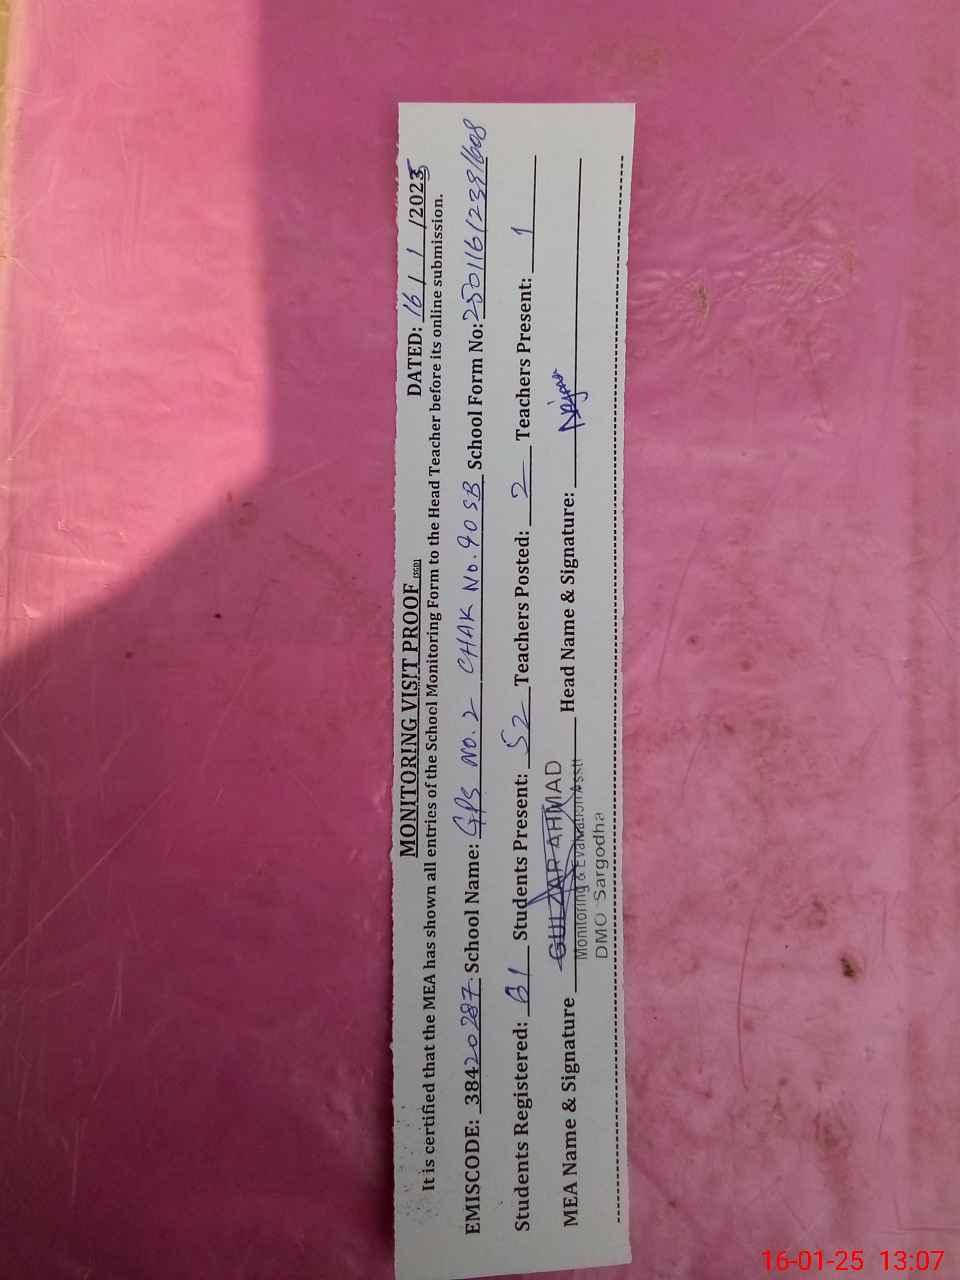 MONITORING VISIT PROOF (SGD)
DATED: 16 / 1 /2025
It is certified that the MEA has shown all entries of the School Monitoring Form to the Head Teacher before its online submission.
EMISCODE: 38420287 School Name: GPS No. 2 CHAK No. 90 SB School Form No:
Students Registered: 61 Students Present: 52 Teachers Posted: 2 Teachers Present: 1
MEA Name & Signature GULZAR AHMAD Head Name & Signature:
Monitoring & Evaluation Asstt
DMO Sargodha
16-01-25 13:07